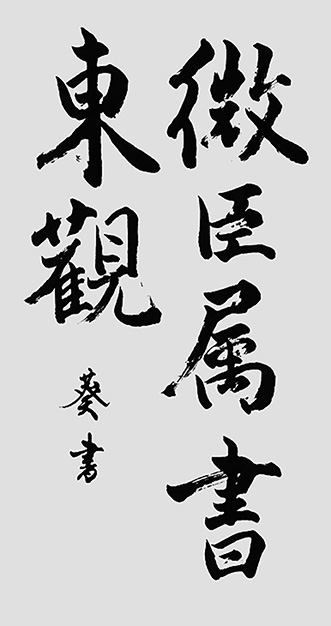 微臣属書
東觀
葵書